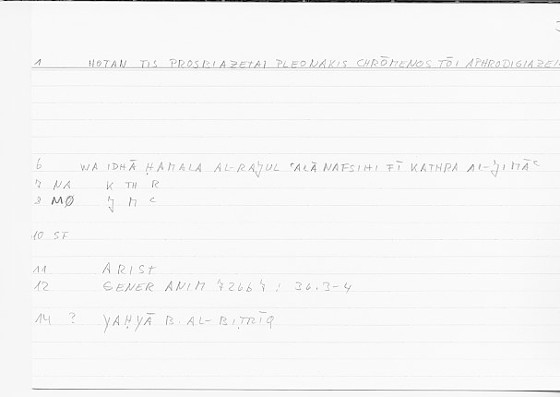 1 HOTAN TIS PROSBIAZETAI PLEONAKIS CHRŌMENOS TŌI APHRODISIAZEI
6 WA IDHĀ ḤAMALA AL-RAǦUL ʿALĀ NAFSIHI FĪ KATHRA AL-ǦIMĀʿ
7 NA K TH R
8 MØ Ǧ M ʿ
10 SF
11 ARIST
12 GENER ANIM 726b7 : 36.3-4
14 ? YAḤYĀ B. AL-BIṬRĪQ